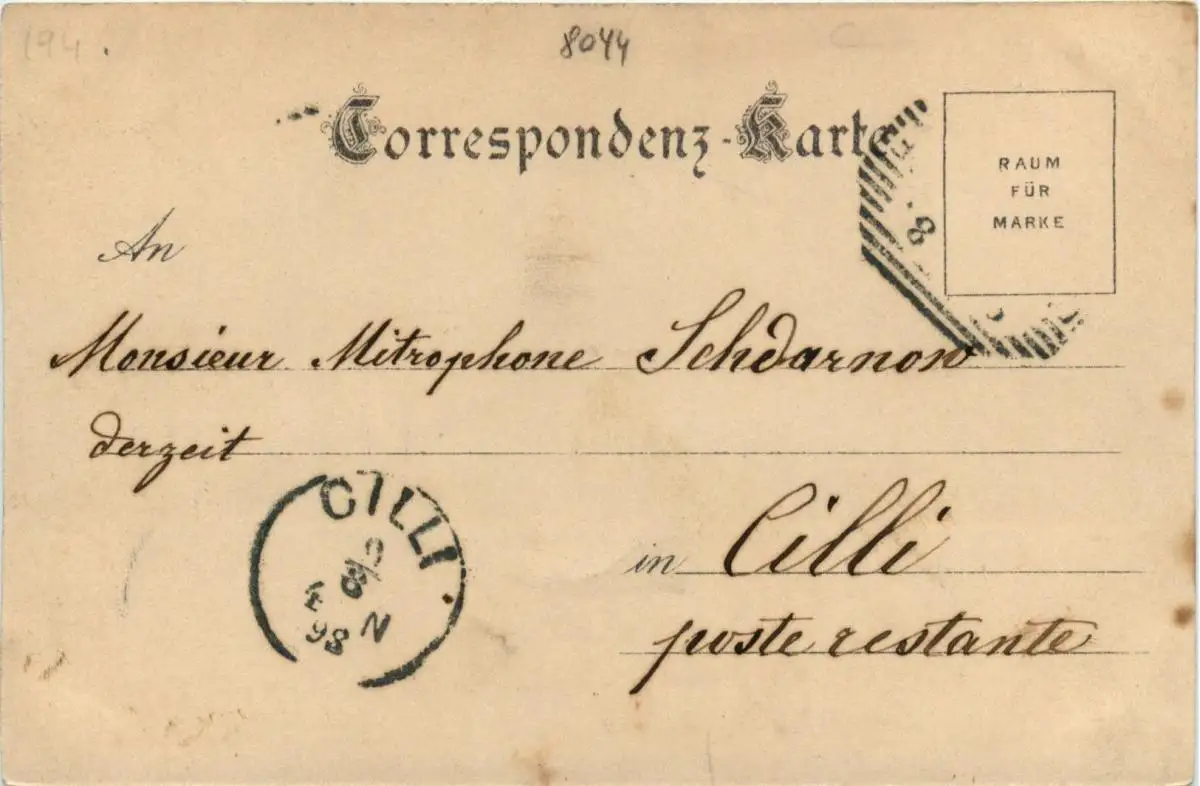 194
8044
Correspondenz-Karte
RAUM
FÜR
MARKE
An
Monsieur Mitrophone Schdarnow
derzeit
CILLI
98 N
in Cilli
poste restante